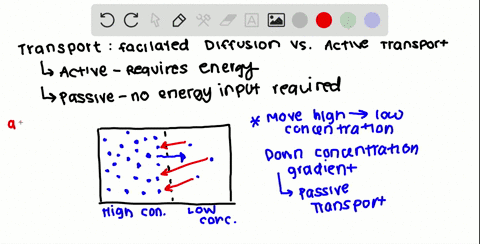 Transport: facilated Diffusion vs. Active Transport
↳ Active - Requires energy
↳ Passive - no energy input required
a
* Move high → low
concentration
Down concentration
gradient
↳ passive
transport
High con.
Low
conc.